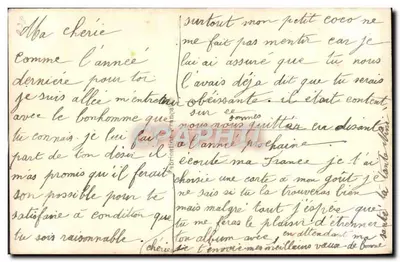 Ma cherie
comme l'année
derniere pour toi
je suis allée m'entretenir
avec le bonhomme que
tu connais je lui fai
part de ton désir il
m'as promis qu'il ferait
son possible pour te
satisfaire a condition que
tu sois raisonnable.
cherie
surtout mon petit coco ne
me fait pas mentir car je
lui ai assuré que tu nous
l'avais déja dit que tu serais
obeissante. il etait content,
sur ce
nous nous sommes quittés en disant
a l'année prochaine.
ecoute ma France je t'ai
choisie une carte a mon goût je
ne sais si tu la trouveras bien
mais malgré tout j'espère que
tu me feras le plaisir d'étrenner
ton album avec en attendant ma
je t'envoie mes meilleurs vœux de bonne
santé la tante